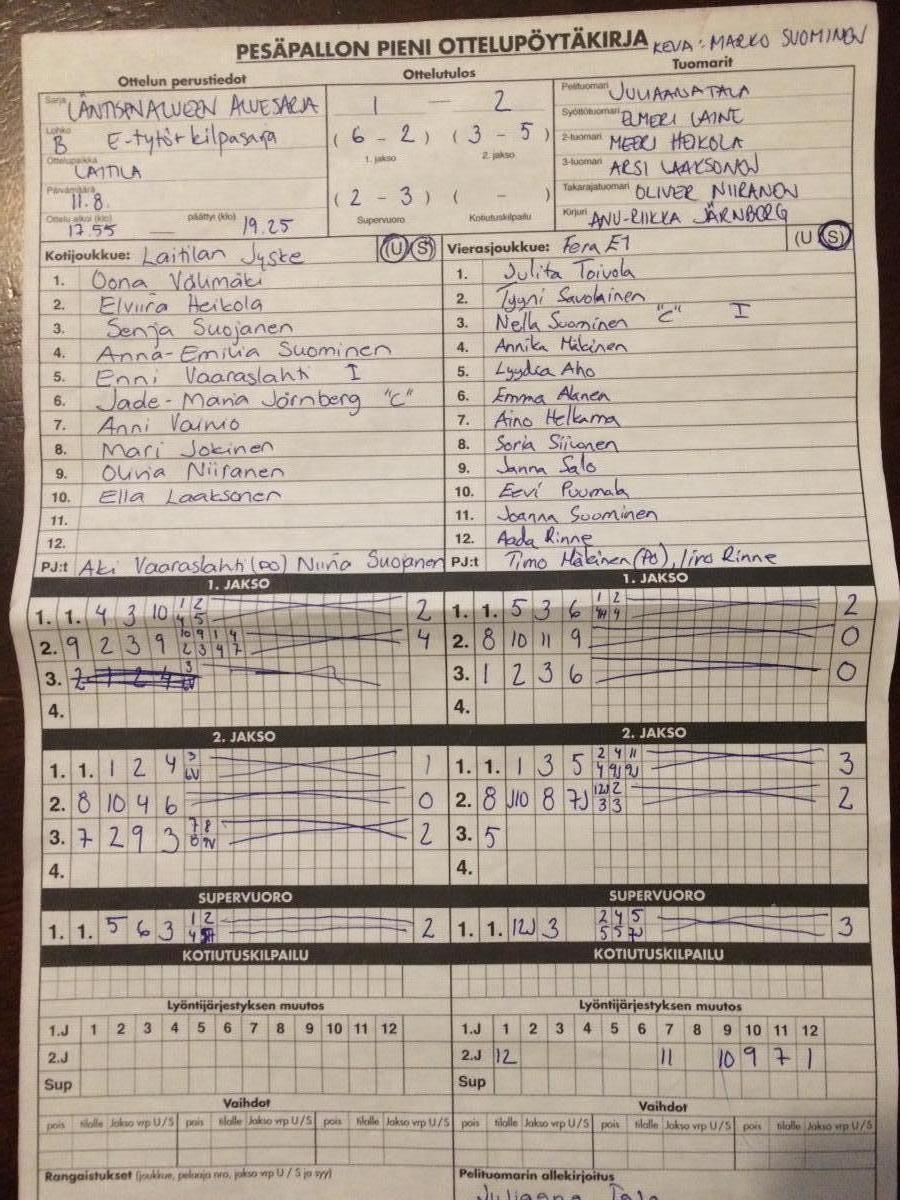 PESÄPALLON PIENI OTTELUPÖYTÄKIRJA KEVA: MARKO SUOMINEN
Ottelun perustiedot
Sarja LÄNTISEN ALUEEN ALUESARJA
Lohko B E-tytöt kilpasarja
Ottelupaikka LAITILA
Päivämäärä 11.8.
Ottelu alkoi (klo) 17.55 — päättyi (klo) 19.25
Ottelutulos
1 — 2
(6 - 2) (3 - 5)
1. jakso 2. jakso
(2 - 3) ( - )
Supervuoro Kotiutuskilpailu
Tuomarit
Pelituomari JULIAANA TALA
Syöttötuomari ELMERI LAINE
2-tuomari MEERI HEIKOLA
3-tuomari ARSI LAAKSONEN
Takarajatuomari OLIVER NIIRANEN
Kirjuri ANU-RIIKKA JÄRNBORG
Kotijoukkue: Laitilan Jyske (U) (S)
1. Oona Välimäki
2. Elviira Heikola
3. Senja Suojanen
4. Anna-Emilia Suominen
5. Enni Vaaraslahti I
6. Jade-Maria Jörnberg "C"
7. Anni Vainio
8. Mari Jokinen
9. Olivia Niiranen
10. Ella Laaksonen
11.
12.
PJ:t Aki Vaaraslahti (PO) Niina Suojanen
Vierasjoukkue: Fera E1 (U (S)
1. Julita Toivola
2. Tyyni Savolainen
3. Nella Suominen "C" I
4. Annika Mäkinen
5. Lyydia Aho
6. Emma Alanen
7. Aino Helkama
8. Sonja Siivonen
9. Janna Salo
10. Eevi Puumala
11. Joanna Suominen
12. Aada Rinne
PJ:t Timo Mäkinen (PO), Iiro Rinne
1. JAKSO
1. 1. 4 3 10 1 2 2
4 5
2. 9 2 3 9 10 9 1 4 4
2 3 4 7
3.
4.
1. JAKSO
1. 1. 5 3 6 1 2 2
4
2. 8 10 11 9 0
3. 1 2 3 6 0
4.
2. JAKSO
1. 1. 1 2 4 3 1
6V
2. 8 10 4 6 0
3. 7 2 9 3 7 8 2
8 9V
4.
2. JAKSO
1. 1. 1 3 5 2 4 11 3
4 9J 9J
2. 8 J10 8 7J 12J 2 2
3 3
3. 5
4.
SUPERVUORO
1. 1. 5 6 3 1 2 2
4
SUPERVUORO
1. 1. 12J 3 2 4 5 3
5 5 7J
KOTIUTUSKILPAILU
KOTIUTUSKILPAILU
Lyöntijärjestyksen muutos
1.J 1 2 3 4 5 6 7 8 9 10 11 12
2.J
Sup
Lyöntijärjestyksen muutos
1.J 1 2 3 4 5 6 7 8 9 10 11 12
2.J 12 11 10 9 7 1
Sup
Vaihdot
pois tilalle Jakso vrp U/S pois tilalle Jakso vrp U/S pois tilalle Jakso vrp U/S
Vaihdot
pois tilalle Jakso vrp U/S pois tilalle Jakso vrp U/S pois tilalle Jakso vrp U/S
Rangaistukset (joukkue, pelaaja nro, jakso vrp U / S ja syy)
Pelituomarin allekirjoitus
Juliaana Tala